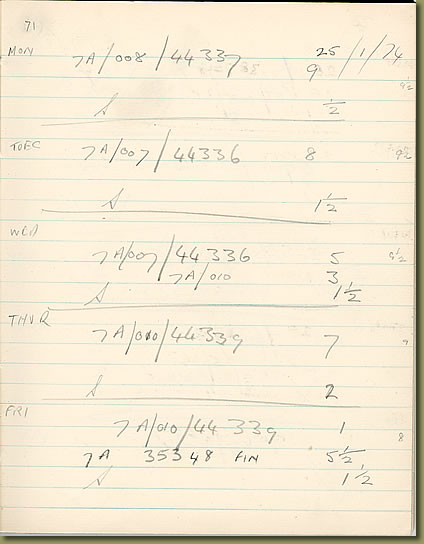 71
MON 7A/008/44337 25/1/74
9
9½
S ½
TUEC 7A/007/44336 8 9½
S 1½
WED
7A/007/44336 5 9½
7A/010 3
S 1½
THUR
7A/010/44339 7 9
S 2
FRI
7A/010/44339 1 8
7A 35348 FIN 5½
S 1½